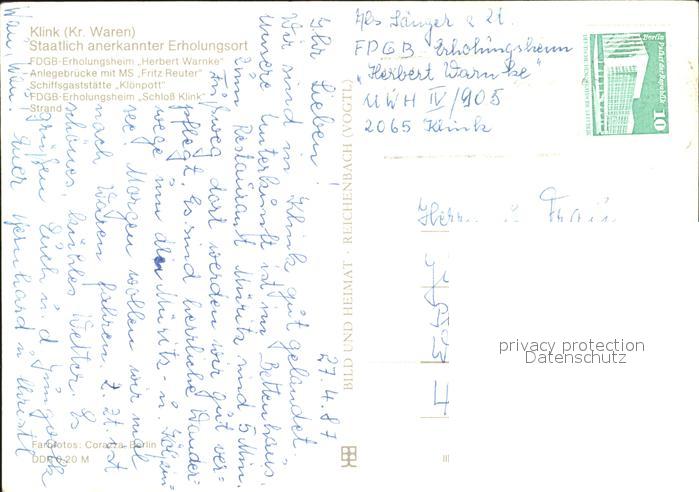 Klink (Kr. Waren)
Staatlich anerkannter Erholungsort
FDGB-Erholungsheim „Herbert Warnke“
Anlegebrücke mit MS „Fritz Reuter“
Schiffsgaststätte „Klönpott“
FDGB-Erholungsheim „Schloß Klink“
Strand
27.4.87
Ihr Lieben!
Wir sind in Klink gut gelandet.
Unsere Unterkunft ist im Bettenhaus.
Im Restaurant Müritz sind 5 Min.
Fußweg dort werden wir gut ver-
pflegt. Es sind herrliche Wander-
wege um die Müritz- u.
see. Morgen wollen wir mal
nach Waren fahren. Z. Zt. ist
schönes, kühles Wetter. Es
grüßen Euch u. d.
Euer Bernhard u. Christl
Farbfotos: Corazza, Berlin
DDR 0,20 M
BILD UND HEIMAT · REICHENBACH (VOGTL)
Abs. Sänger z. Zt.
FDGB-Erholungsheim
„Herbert Warnke“
UWH IV/905
2065 Klink
Berlin Palast der Republik
10
Herrn u. Frau
privacy protection
Datenschutz